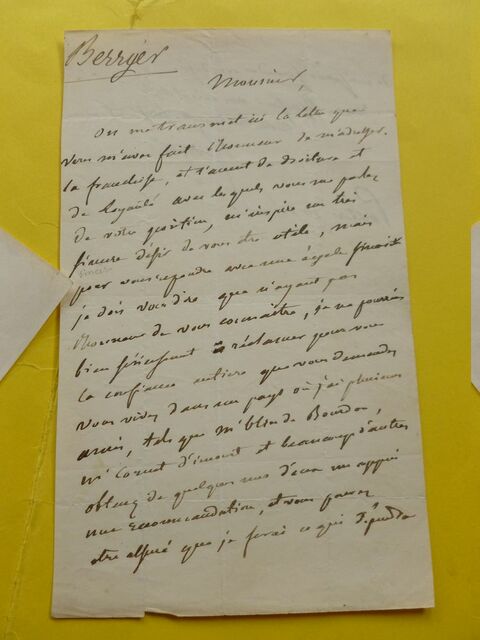 Berryer
Monsieur,
On me transmet ici la lettre que
vous m'avez fait l'honneur de m'adresser.
la franchise, et l'accent de droiture et
de loyauté avec lesquels vous me parlez
de votre position, m'inspire un très
sincère désir de vous être utile, mais
pour vous répondre avec une égale franchise
je dois vous dire que n'ayant pas
l'honneur de vous connaître, je ne pourrais
bien sérieusement réclamer pour vous
la confiance entière que vous demandez
vous vivez dans un pays où j'ai plusieurs
amis, tels que Mr de Bourdon,
Mr Cornet d' et beaucoup d'autres
obtenez de quelques uns d'eux un appui
une recommandation, et vous pouvez
être assuré que je ferai ce qui